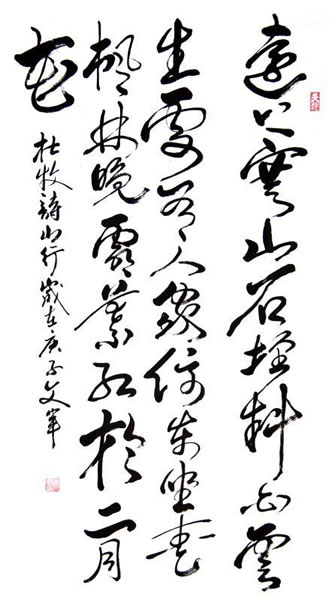 遠上寒山石徑斜白雲
生處有人家停車坐愛
楓林晚霜葉紅於二月
花
杜牧詩山行歲在庚子文軍